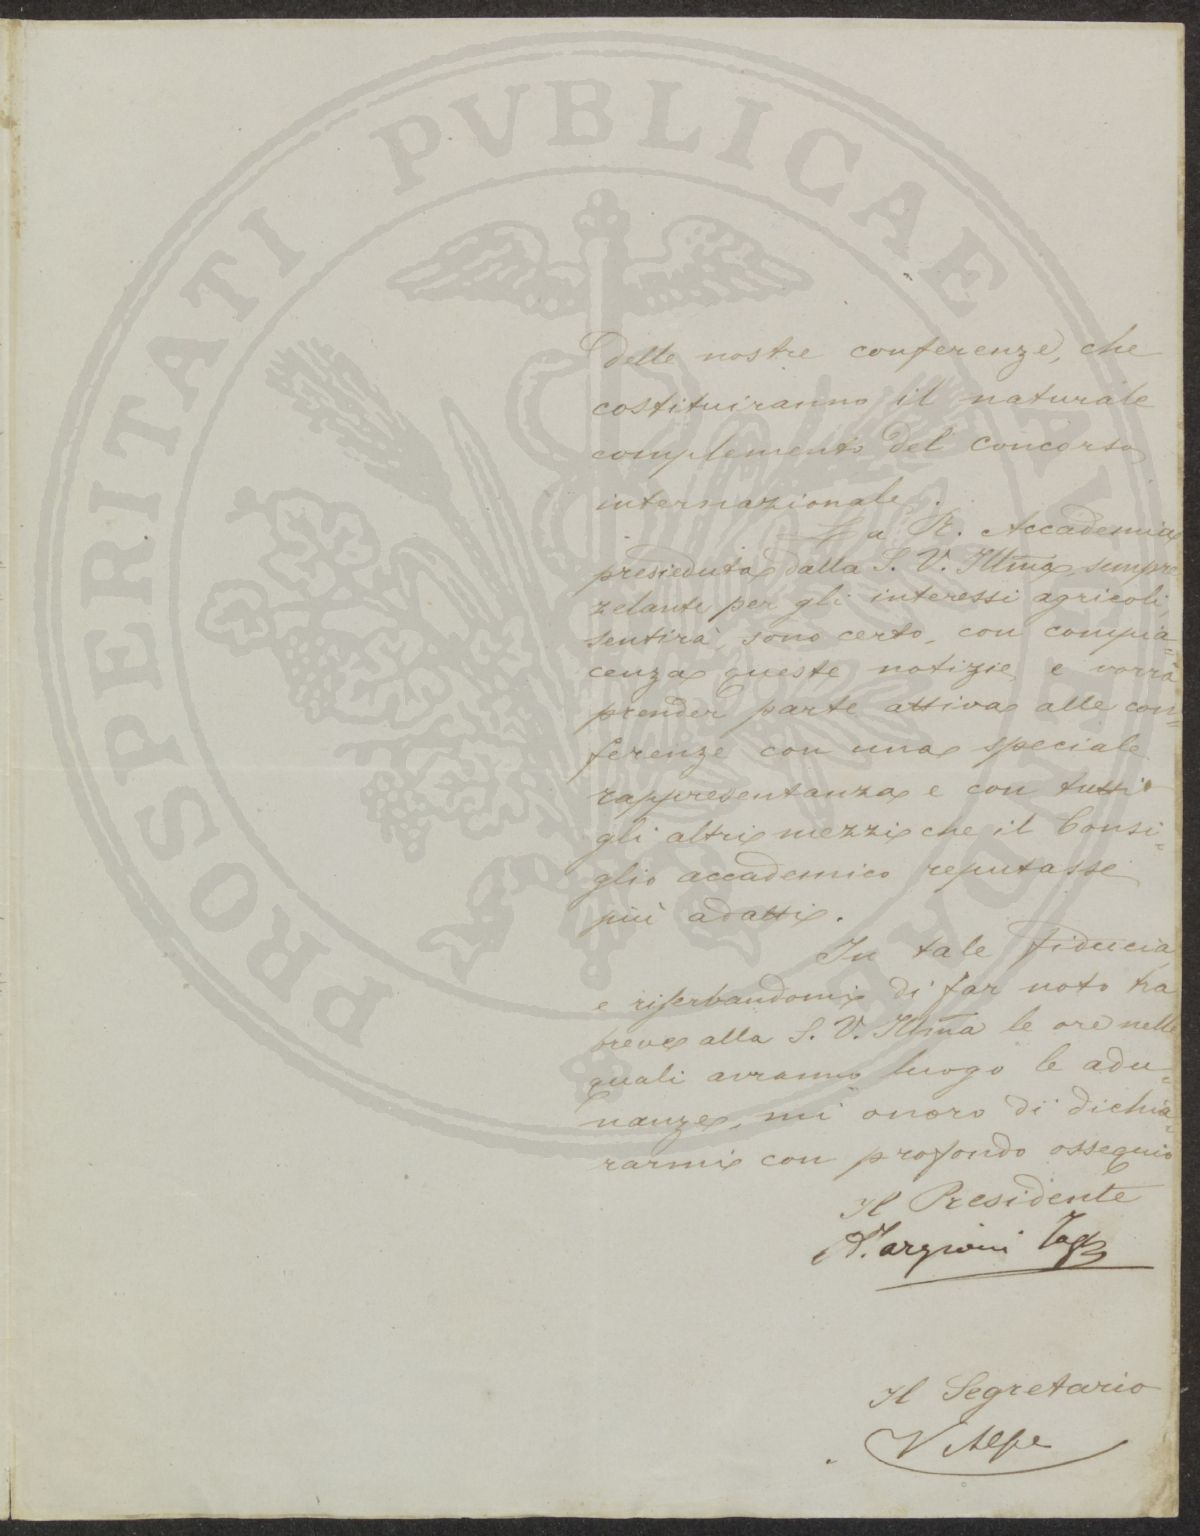 delle nostre conferenze, che
costituiranno il naturale
complemento del Concorso
internazionale.
La R. Accademia
presieduta dalla S. V. Illma, sempre
zelante per gli interessi agricoli,
sentirà, sono certo, con compia=
cenza queste notizie, e vorrà
prender parte attiva alle con=
ferenze con una speciale
rappresentanza e con tutti
gli altri mezzi che il Consi=
glio accademico reputasse
più adatti.
In tale fiducia,
e riserbandomi di far noto tra
breve alla S. V. Illma le ore nelle
quali avranno luogo le adu=
nanze, mi onoro di dichia=
rarmi con profondo ossequio
Il Presidente
Targioni
Il Segretario
V Alpe
PROSPERITATI PVBLICAE